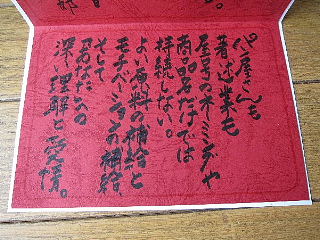 パン屋さんも
著述業も
屋号のネーミングや
商品名だけでは
持続しない。
よい原料の補給と
モチベーションの補給
そして
あなたへの
深い理解と愛情。